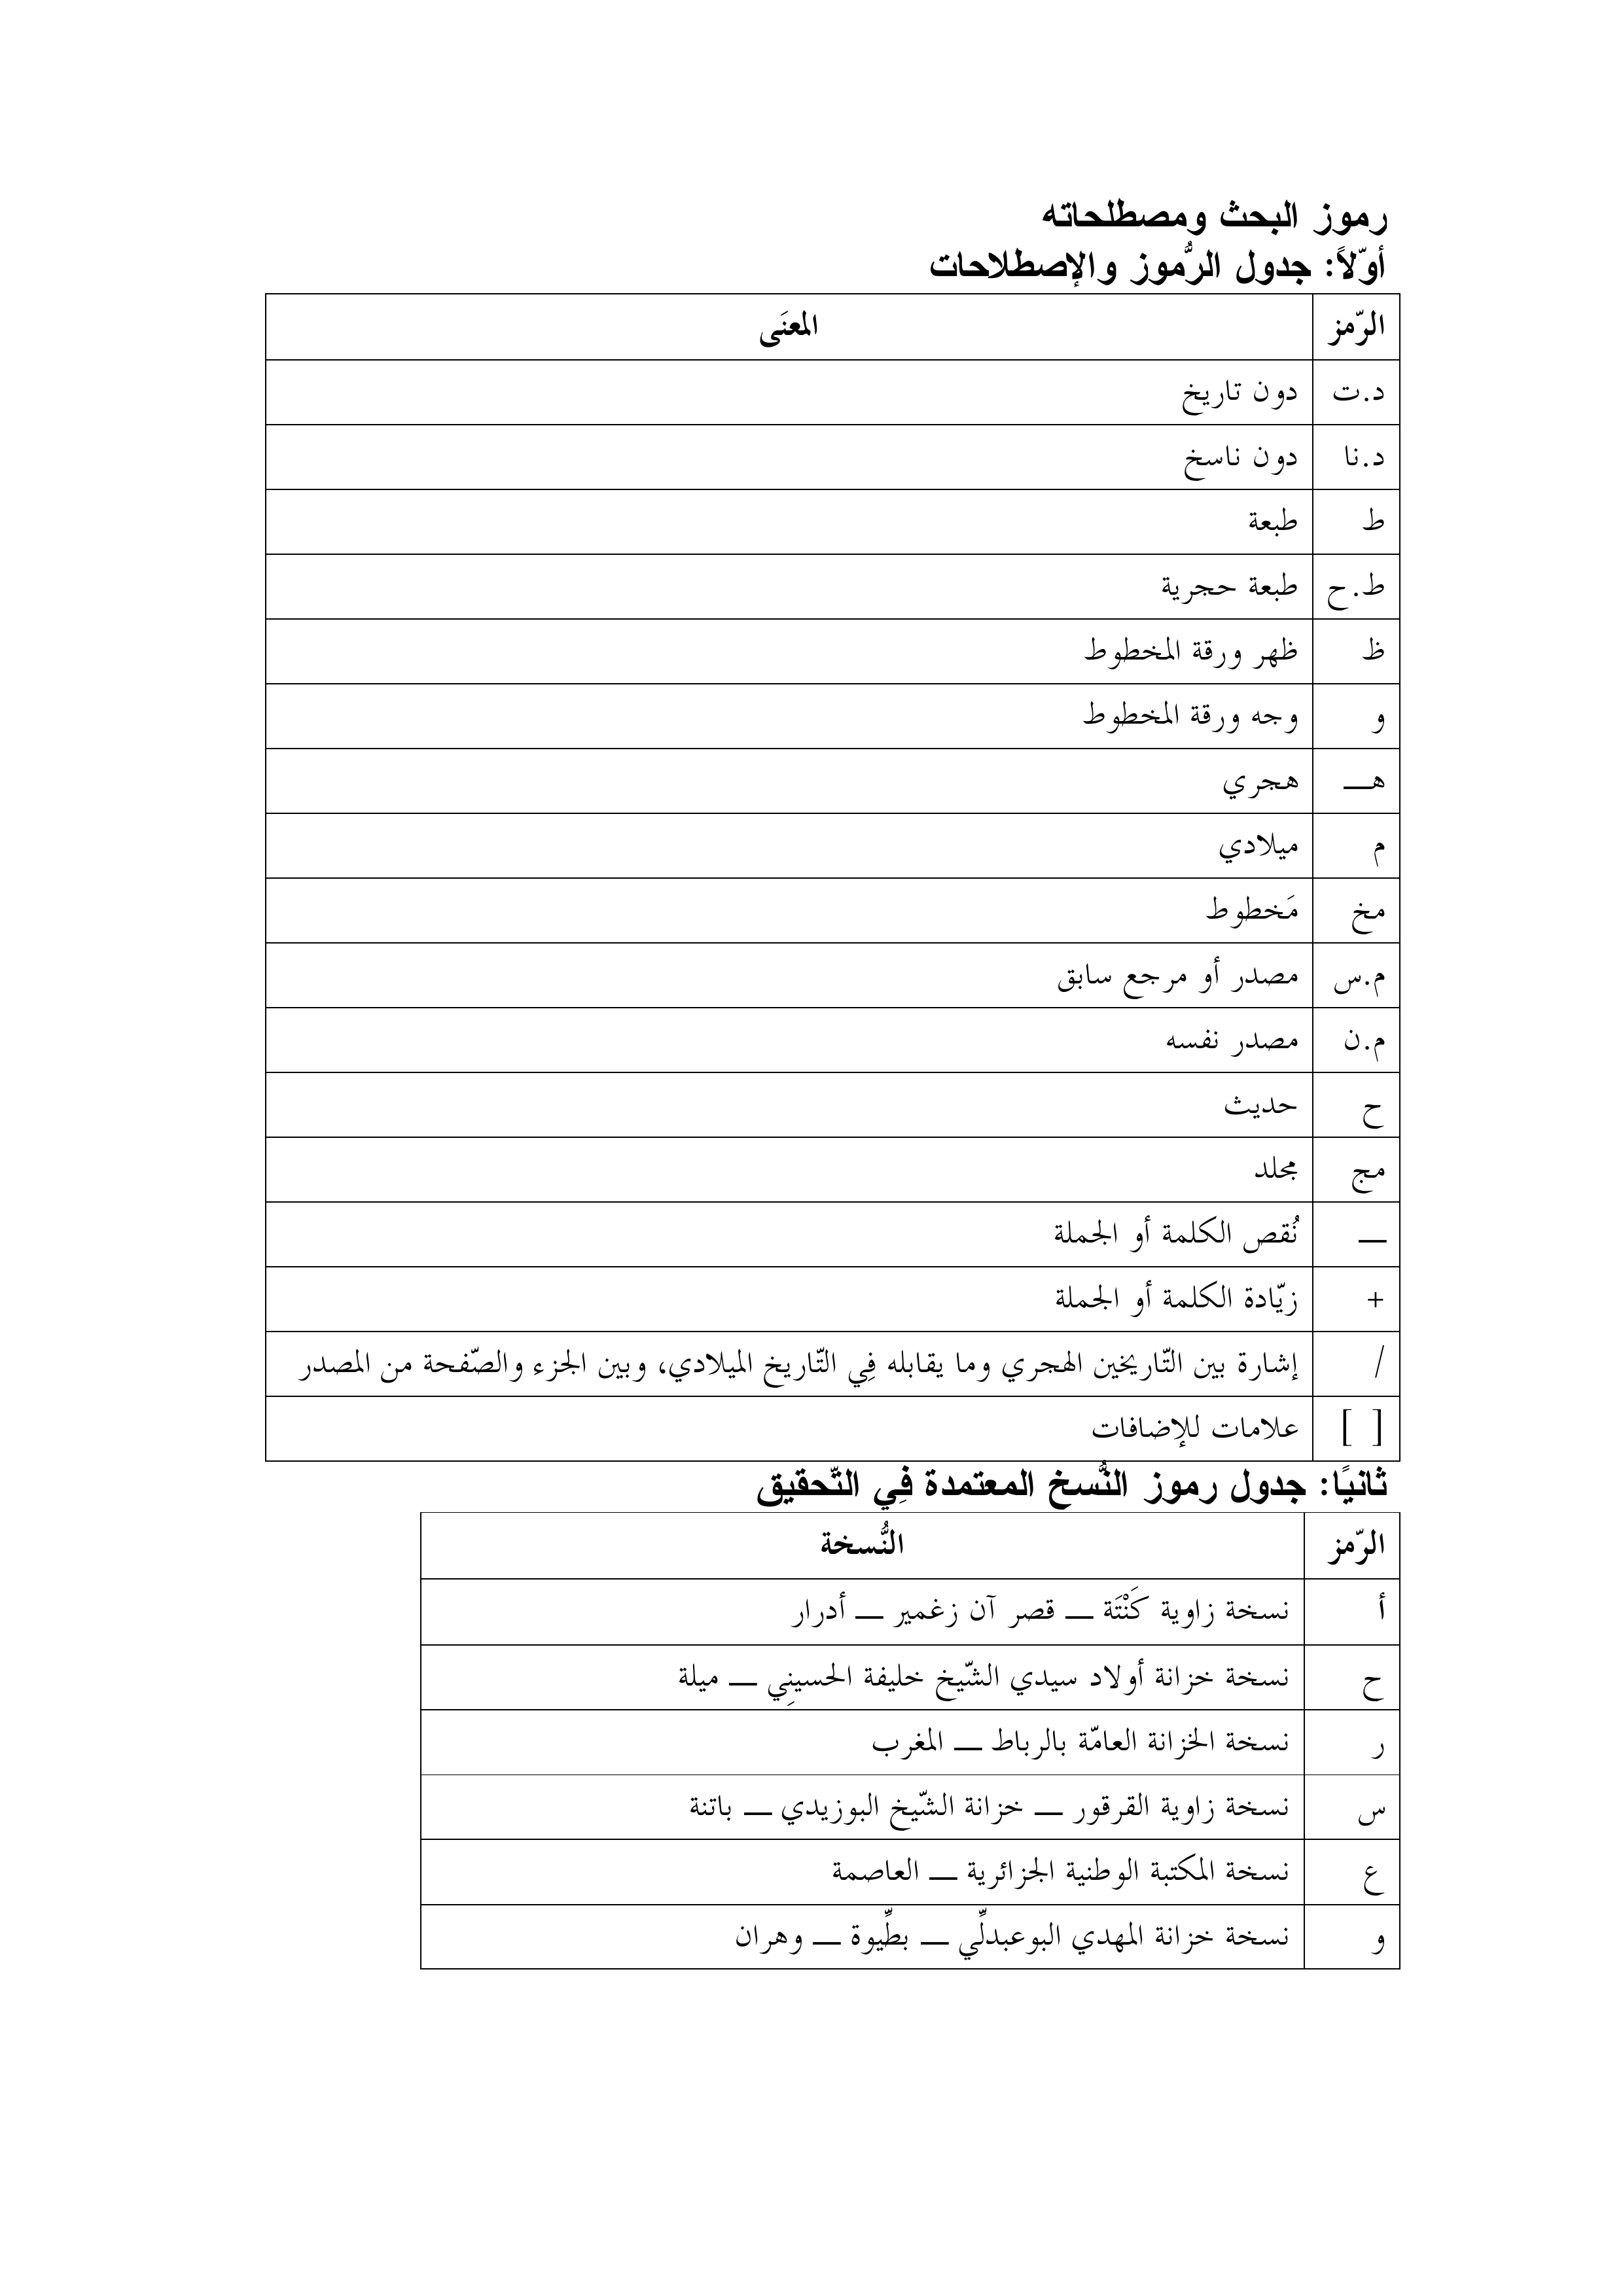 رموز البحث ومصطلحاته
أوّلاً: جدول الرُّموز والإصطلاحات
الرّمز المعنَى
د.ت دون تاريخ
د.نا دون ناسخ
ط طبعة
ط.ح طبعة حجرية
ظ ظهر ورقة المخطوط
و وجه ورقة المخطوط
هـــ هجري
م ميلادي
مخ مَخطوط
م.س مصدر أو مرجع سابق
م.ن مصدر نفسه
ح حديث
مج مجلد
ـــ نُقص الكلمة أو الجملة
+ زيّادة الكلمة أو الجملة
/ إشارة بين التّاريخين الهجري وما يقابله فِي التّاريخ الميلادي، وبين الجزء والصّفحة من المصدر
[ ] علامات للإضافات
ثانيًا: جدول رموز النُّسخ المعتمدة فِي التّحقيق
الرّمز النُّسخة
أ نسخة زاوية كَنْتَة ـــ قصر آن زغمير ـــ أدرار
ح نسخة خزانة أولاد سيدي الشّيخ خليفة الحسينِي ـــ ميلة
ر نسخة الخزانة العامّة بالرباط ـــ المغرب
س نسخة زاوية القرقور ـــ خزانة الشّيخ البوزيدي ـــ باتنة
ع نسخة المكتبة الوطنية الجزائرية ـــ العاصمة
و نسخة خزانة المهدي البوعبدلِّي ـــ بطِّيوة ـــ وهران